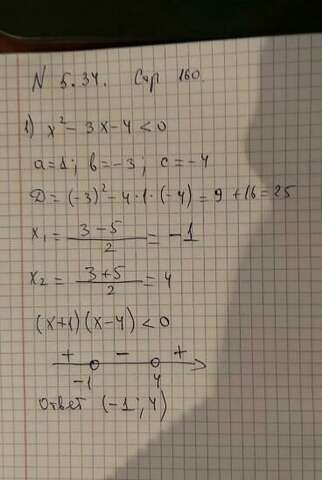 N 5.34. Стр 160.
1) x² - 3x - 4 < 0
a = 1; b = -3; c = -4
D = (-3)² - 4·1·(-4) = 9 + 16 = 25
x₁ = (3-5)/2 = -1
x₂ = (3+5)/2 = 4
(x+1)(x-4) < 0
+ - +
-1 4
Ответ (-1; 4)